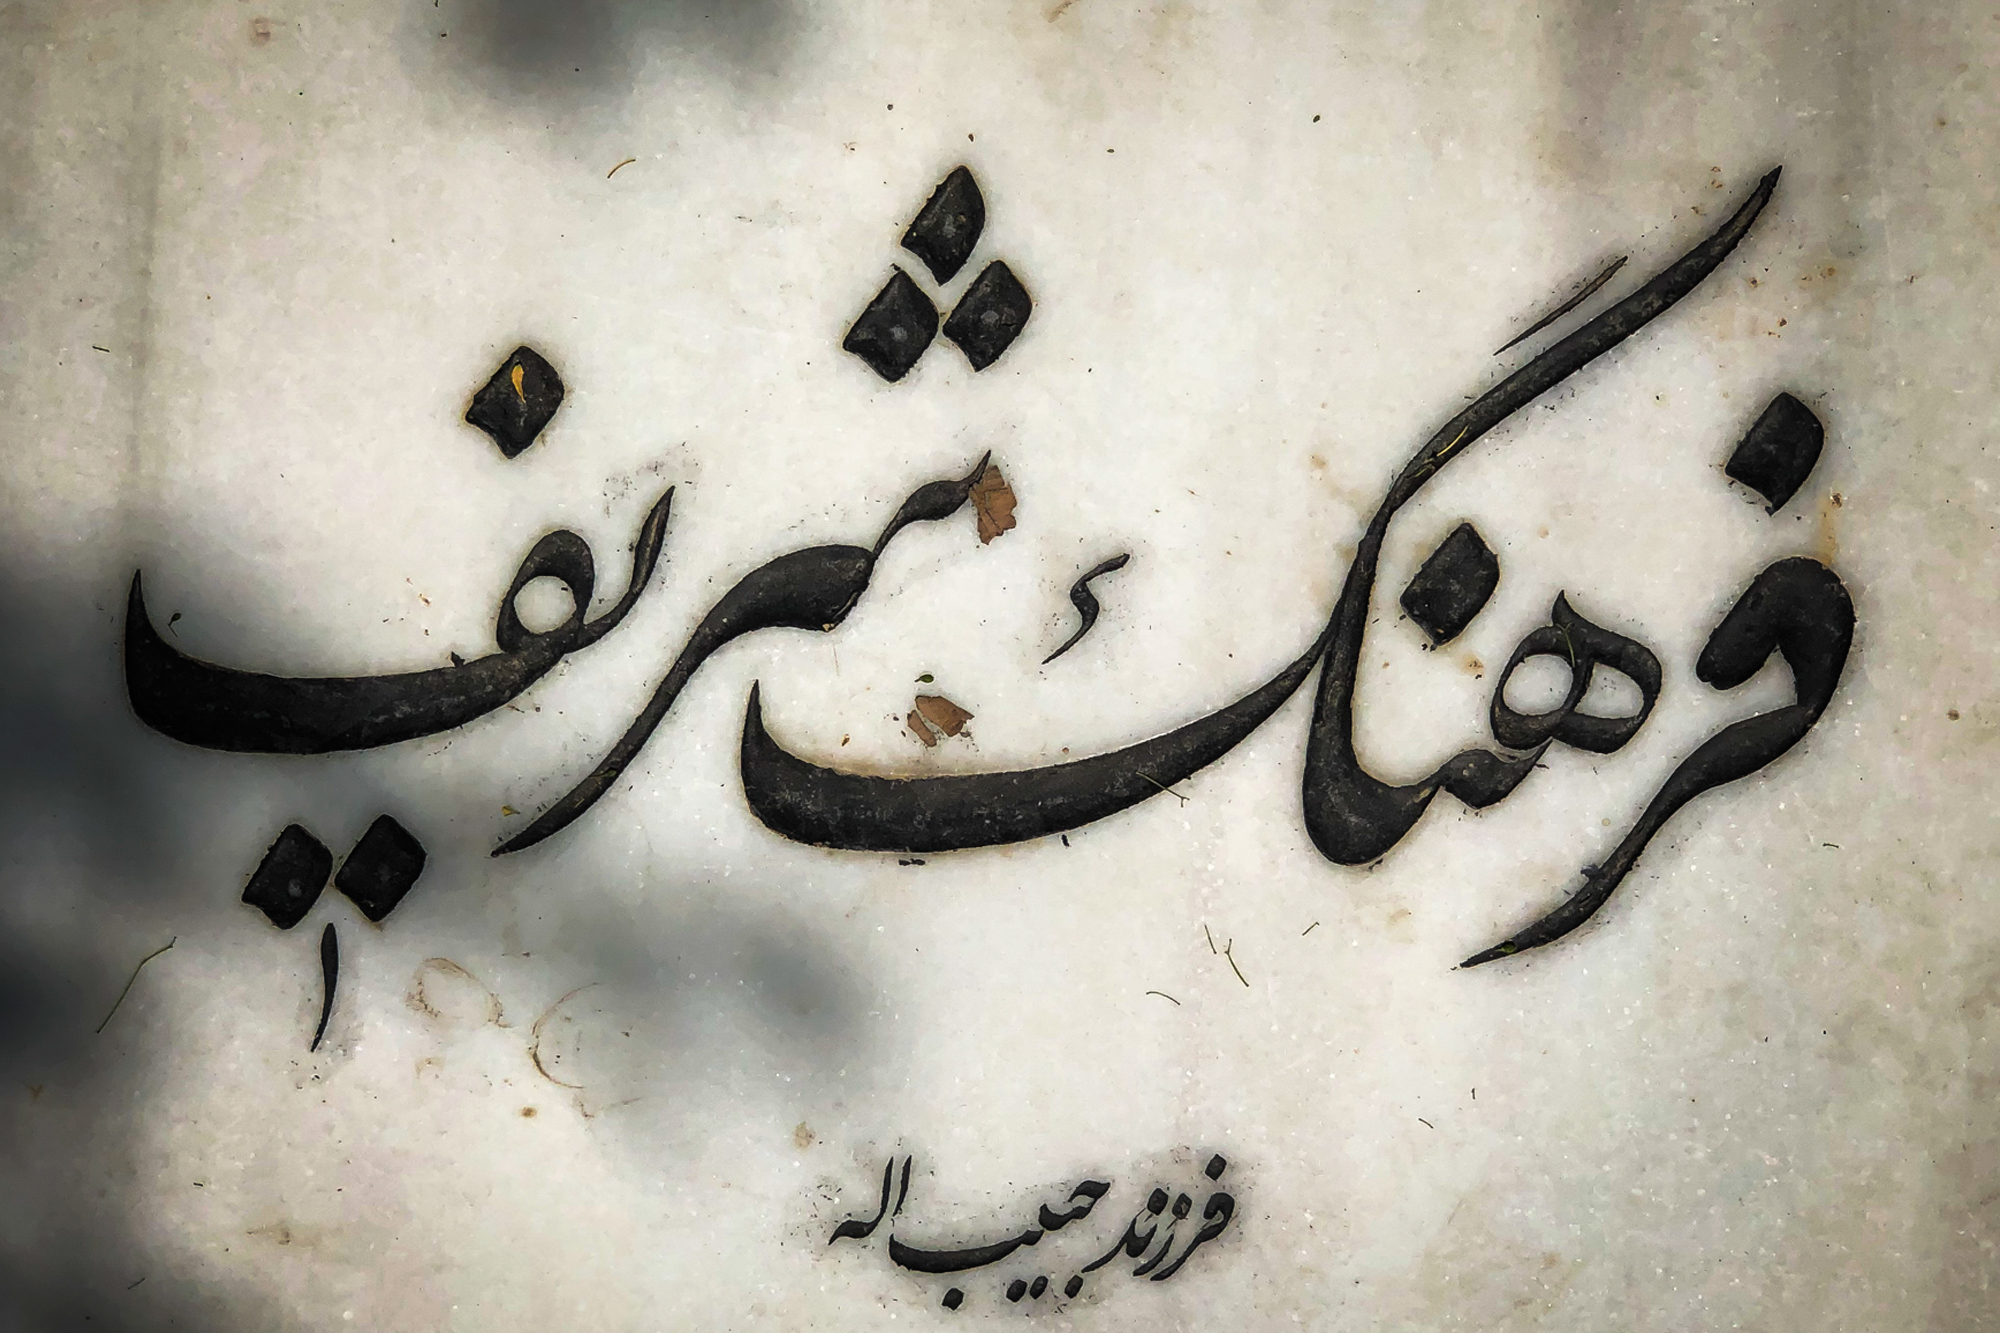 فرهنگ شریف
فرزند حبیب اله